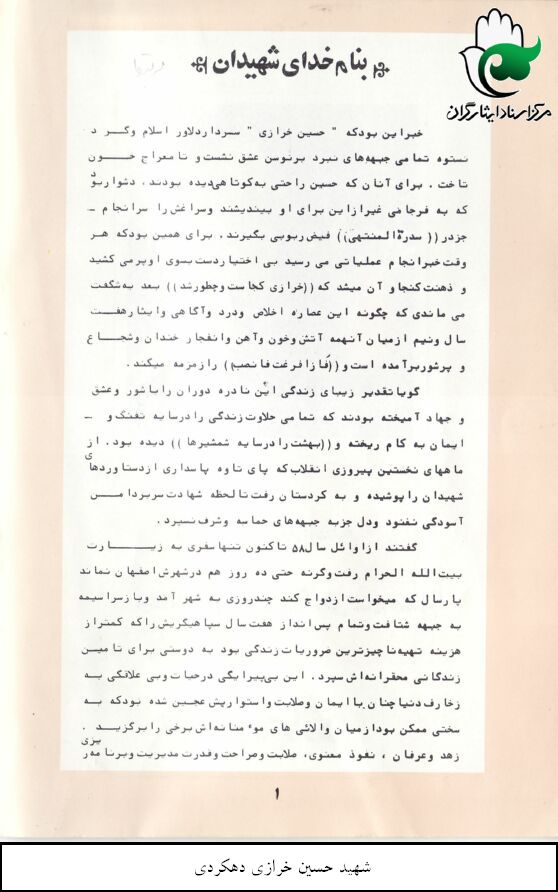 مرکز اسناد ایثارگران
بنام خدای شهیدان
خبر این بود که " حسین خرازی " سردار دلاور اسلام و گرد
نستوه تمامی جبهه‌های نبرد بر توسن عشق نشست و تا معراج خون
تاخت . برای آنان که حسین را حتی به کوتاهی دیده بودند . دشوار بود
که به فرجامی غیر از این برای او بیندیشند و سراغش را سرانجام
جز در (( سدرة المنتهی )) فیض ربوبی بگیرند . برای همین بود که هر
وقت خبر انجام عملیاتی می رسید بی اختیار دست بسوی او پر می کشید
و ذهنت کنجاو آن میشد که (( خرازی کجاست و چطور شد )) بعد به شگفت
می ماندی که چگونه این عصاره اخلاص ودرد وآگاهی وایثار هفت
سال ونیم از میان آنهمه آتش وخون وآهن وانفجار خندان وشجاع
و پرشور برآمده است و (( فَاِذا فرغت فانصب )) را زمزمه میکند .
گویا تقدیر زیبای زندگی این نادره دوران را با شور وعشق
و جهاد آمیخته بودند که تمامی حلاوت زندگی را در سایه تفنگ و
ایمان به کام ریخته و (( بهشت را در سایه شمشیرها )) دیده بود . از
ماههای نخستین پیروزی انقلاب که پای تاوه پاسداری از دستاوردهای
شهیدان را پوشیده و به کردستان رفت تا لحظه شهادت سر بر دامن
آسودگی نغنود ودل جز به جبهه‌های حماسه وشرف نسپرد .
گفتند از اوائل سال ۵۸ تا کنون تنها سفری به زیارت
بیت الله الحرام رفت وگرنه حتی ده روز هم در شهرش اصفهان نماند
پارسال که میخواست ازدواج کند چند روزی به شهر آمد وباز سراسیمه
به جبهه شتافت وتمام پس انداز هفت سال سپاهیگریش را که کمتر از
هزینه تهیه ناچیزترین ضروریات زندگی بود به دوستی برای تامین
زندگانی محقرانه‌اش سپرد . این بی‌پیرایگی در حیات وبی علاقگی به
زخارف دنیا چنان با ایمان وصلابت واستواریش عجین شده بود که به
سختی ممکن بود از میان والائی های موءمنانه‌اش برخی را برگزید .
زهد وعرفان ، نفوذ معنوی، صلابت وصراحت وقدرت مدیریت وبرنامه‌ریزی
۱
شهید حسین خرازی دهکردی